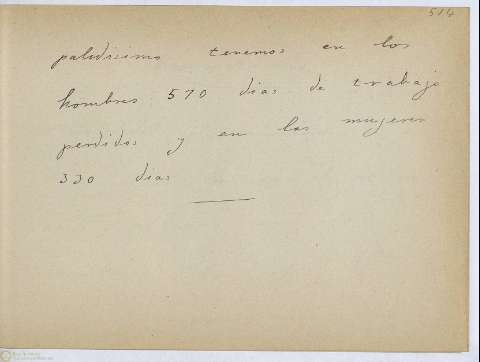 514
paludismo tenemos en los
hombres 570 dias de trabajo
perdidos y en las mujeres
330 dias